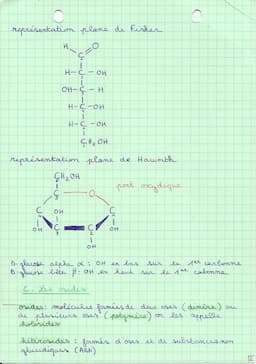 représentation plane de Fisher
H
O
C
H-C-OH
OH-C-H
H-C-OH
H-C-OH
CH₂OH
représentation plane de Haworth
CH₂OH
pont oxydique
C
O
C
OH
C
OH
C
C
OH
OH
D. glucose alpha α : OH en bas sur le 1er carbone
D glucose béta β - OH en haut sur le 1er carbone
C. Les osides
osides: molécules formées de deux oses (dimère) ou
de plusieurs oses (polymère) on les appelle
holosides
hétérosides : formés d'oses et de substances non
glucidiques (ADN)